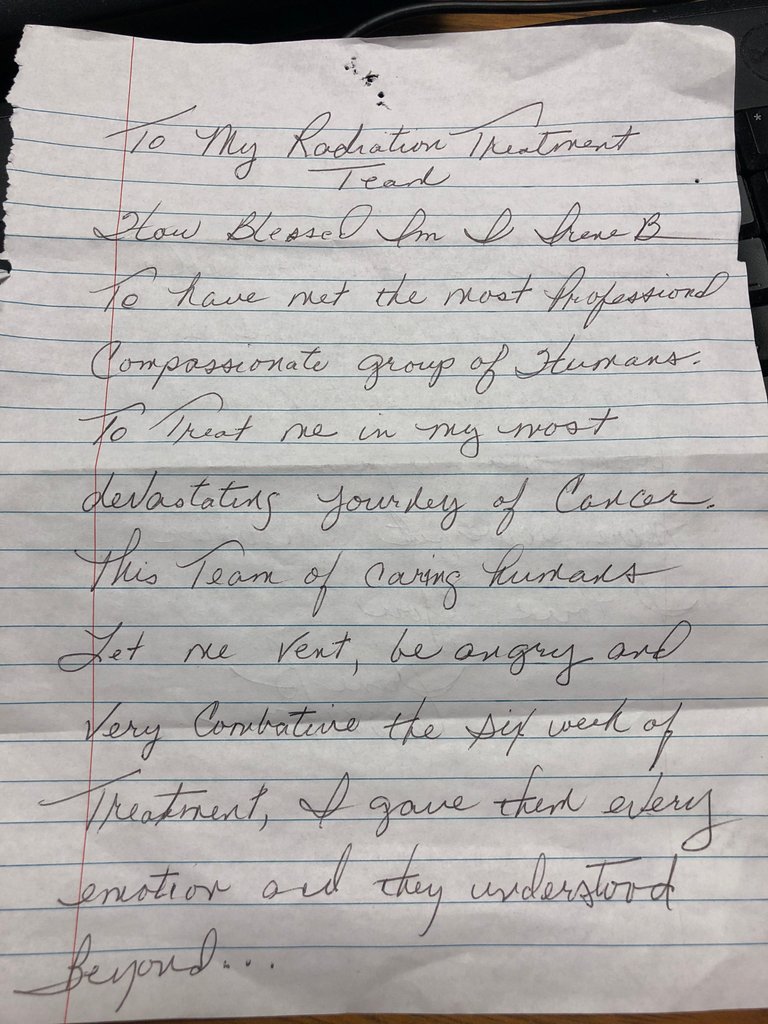 To My Radiation Treatment
Team
How Blessed Im I Irene B
To have met the most Professional
Compassionate group of Humans.
To Treat me in my most
devastating Journey of Cancer.
This Team of caring humans
Let me vent, be angry and
Very Combative the six week of
Treatment, I gave them every
emotion and they understood
Beyond...